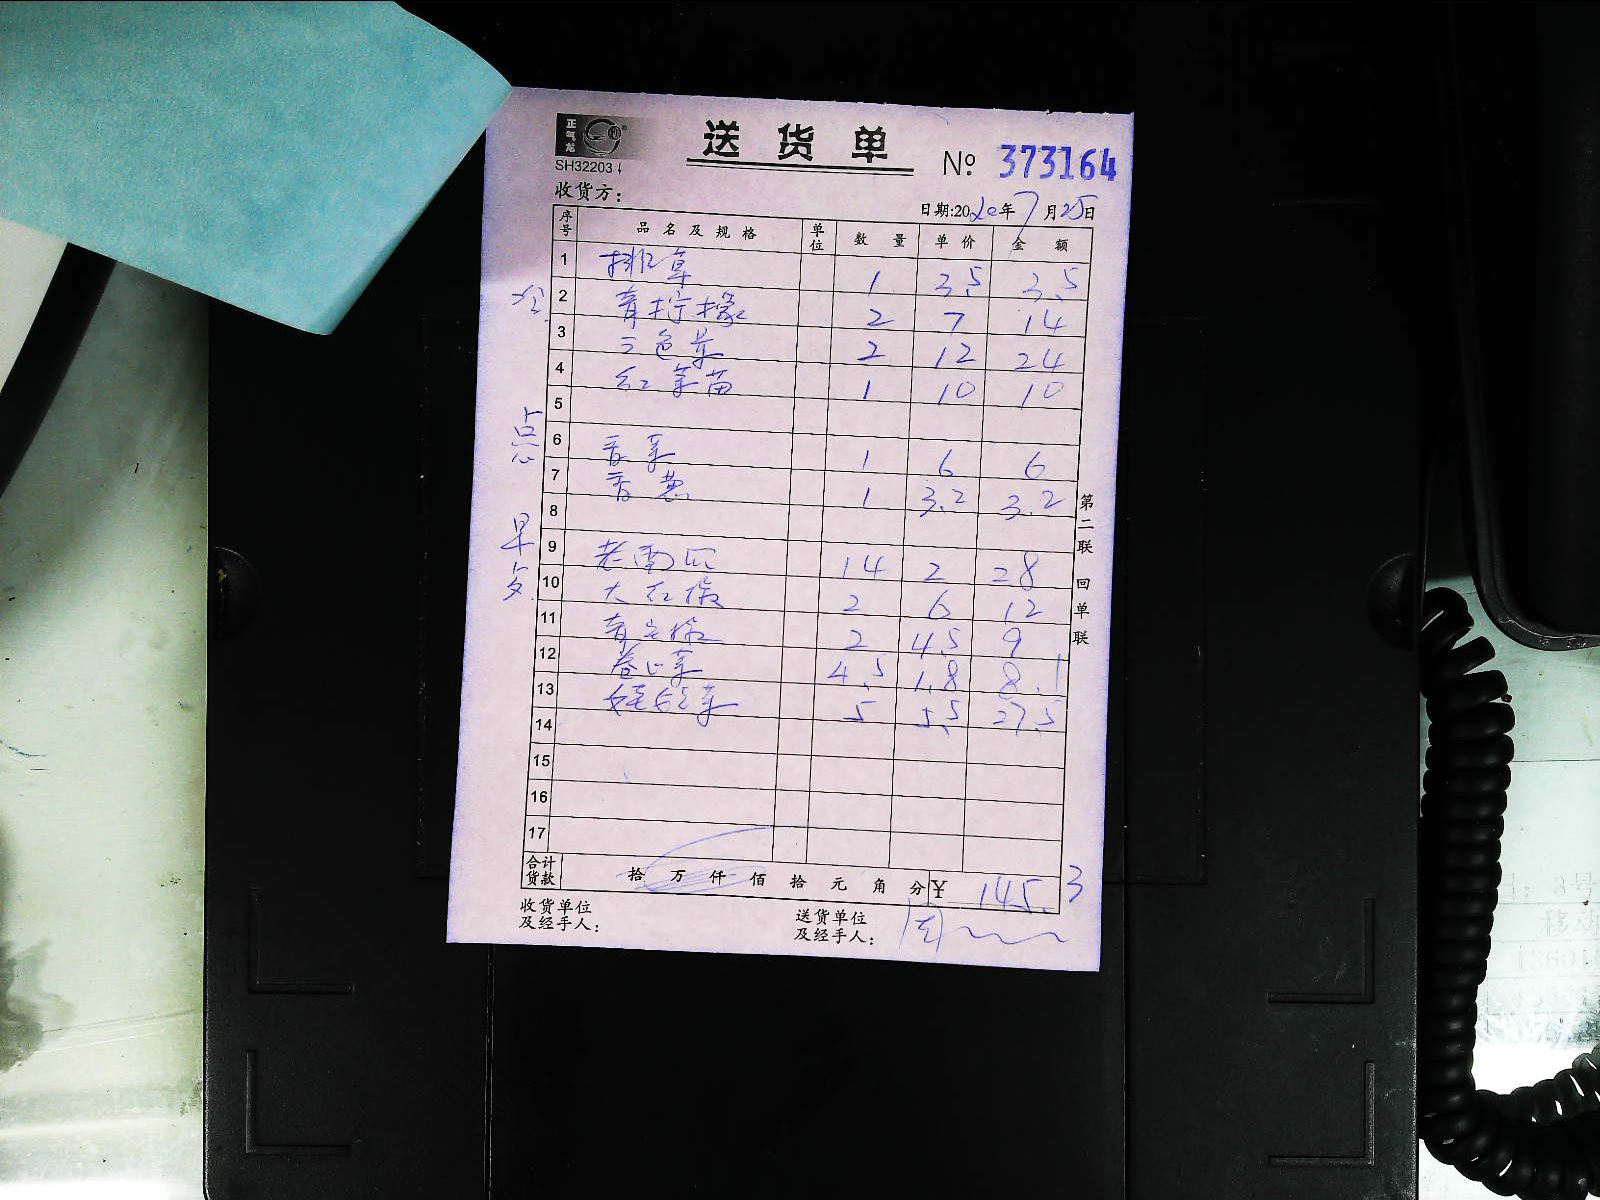 正气龙
SH32203
送货单
No 373164
收货方：
日期:2020年7月25日
序号 品名及规格 单位 数量 单价 金额
1 排草 1 3.5 3.5
冷
2 青柠檬 2 7 14
3 三色芹 2 12 24
4 红菜苗 1 10 10
5
点心
6 香菜 1 6 6
7 香葱 1 3.2 3.2
8
早点
9 老南瓜 14 2 28
10 大红椒 2 6 12
11 青尖椒 2 4.5 9
12 卷心菜 4.5 1.8 8.1
13 娃娃菜 5 5.5 27.5
14
15
16
17
合计货款 拾 万 仟 佰 拾 元 角 分 ¥ 145.3
收货单位及经手人：
送货单位及经手人：
第二联 回单联